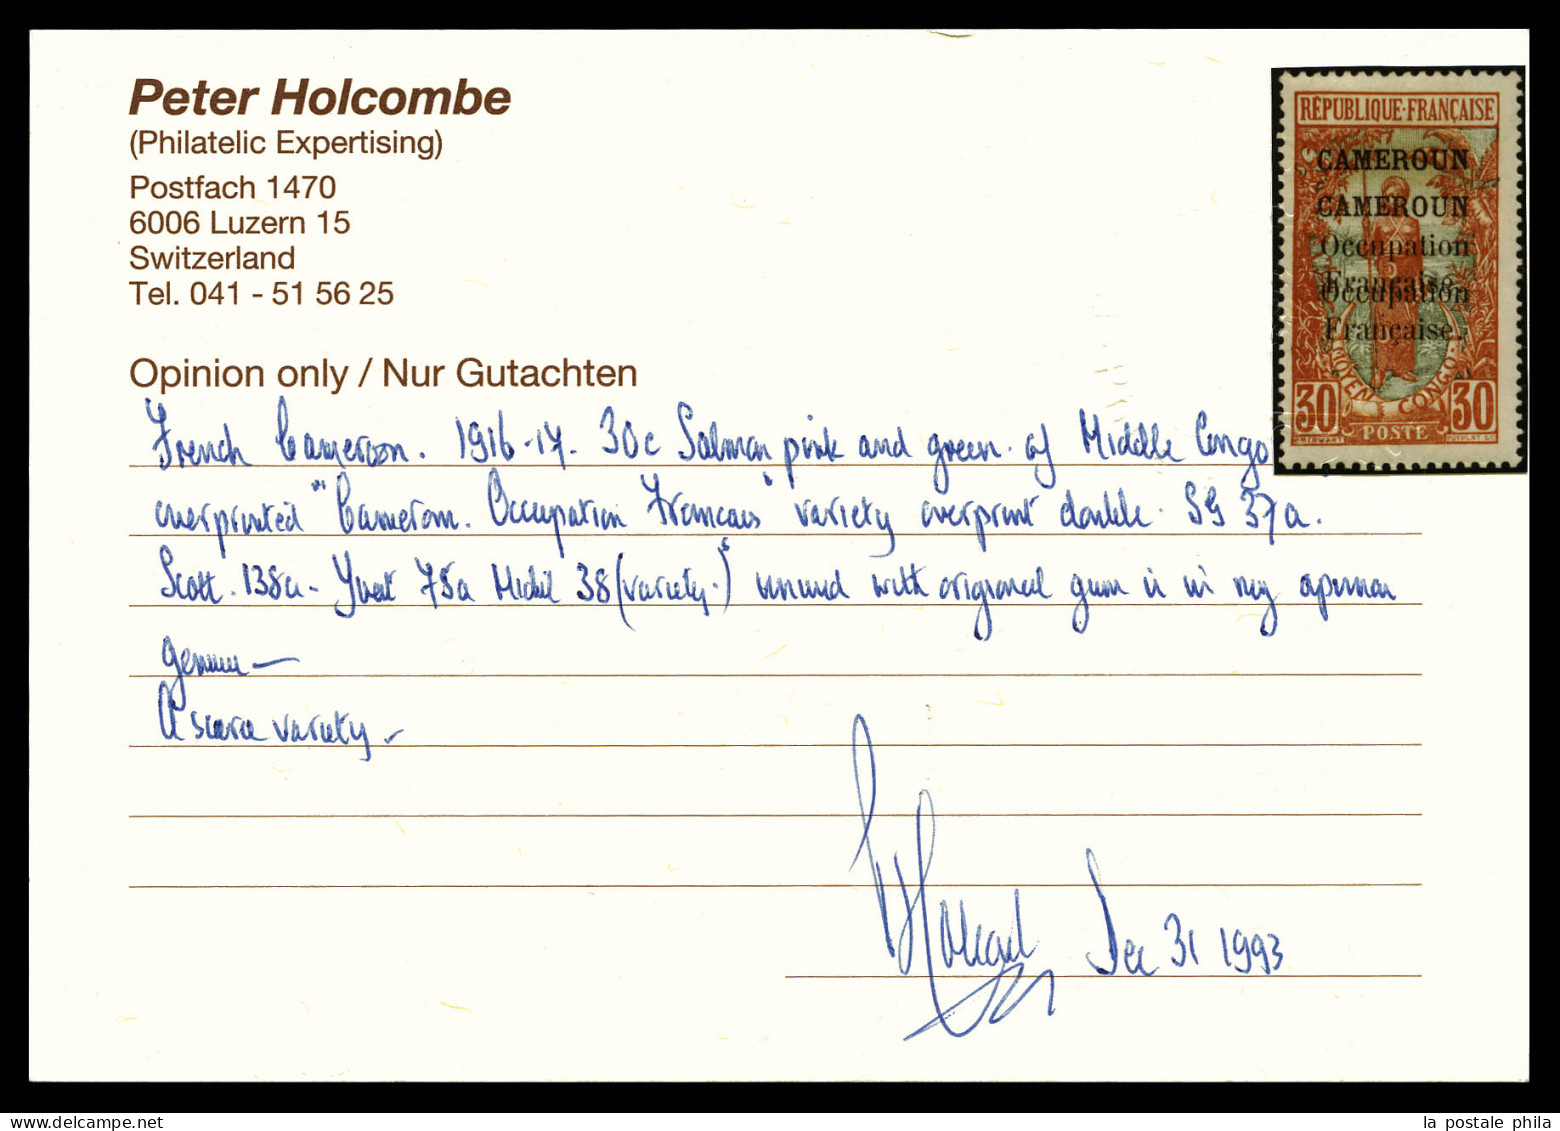 Peter Holcombe
(Philatelic Expertising)
Postfach 1470
6006 Luzern 15
Switzerland
Tel. 041 - 51 56 25
Opinion only / Nur Gutachten
French Cameroon. 1916-17. 30c Salmon pink and green. of Middle Congo
overprinted "Cameroun. Occupation Francais" variety overprint double. SG 37a.
Scott. 138a- Yvert 75a Michel 38 (variety.) unused with original gum is in my opinion
genuine—
A scarce variety.-
Dec 31 1993
RÉPUBLIQUE·FRANÇAISE
CAMEROUN
CAMEROUN
Occupation
Française.
Occupation
Française.
MOYEN CONGO
30 30
POSTE
la postale phila